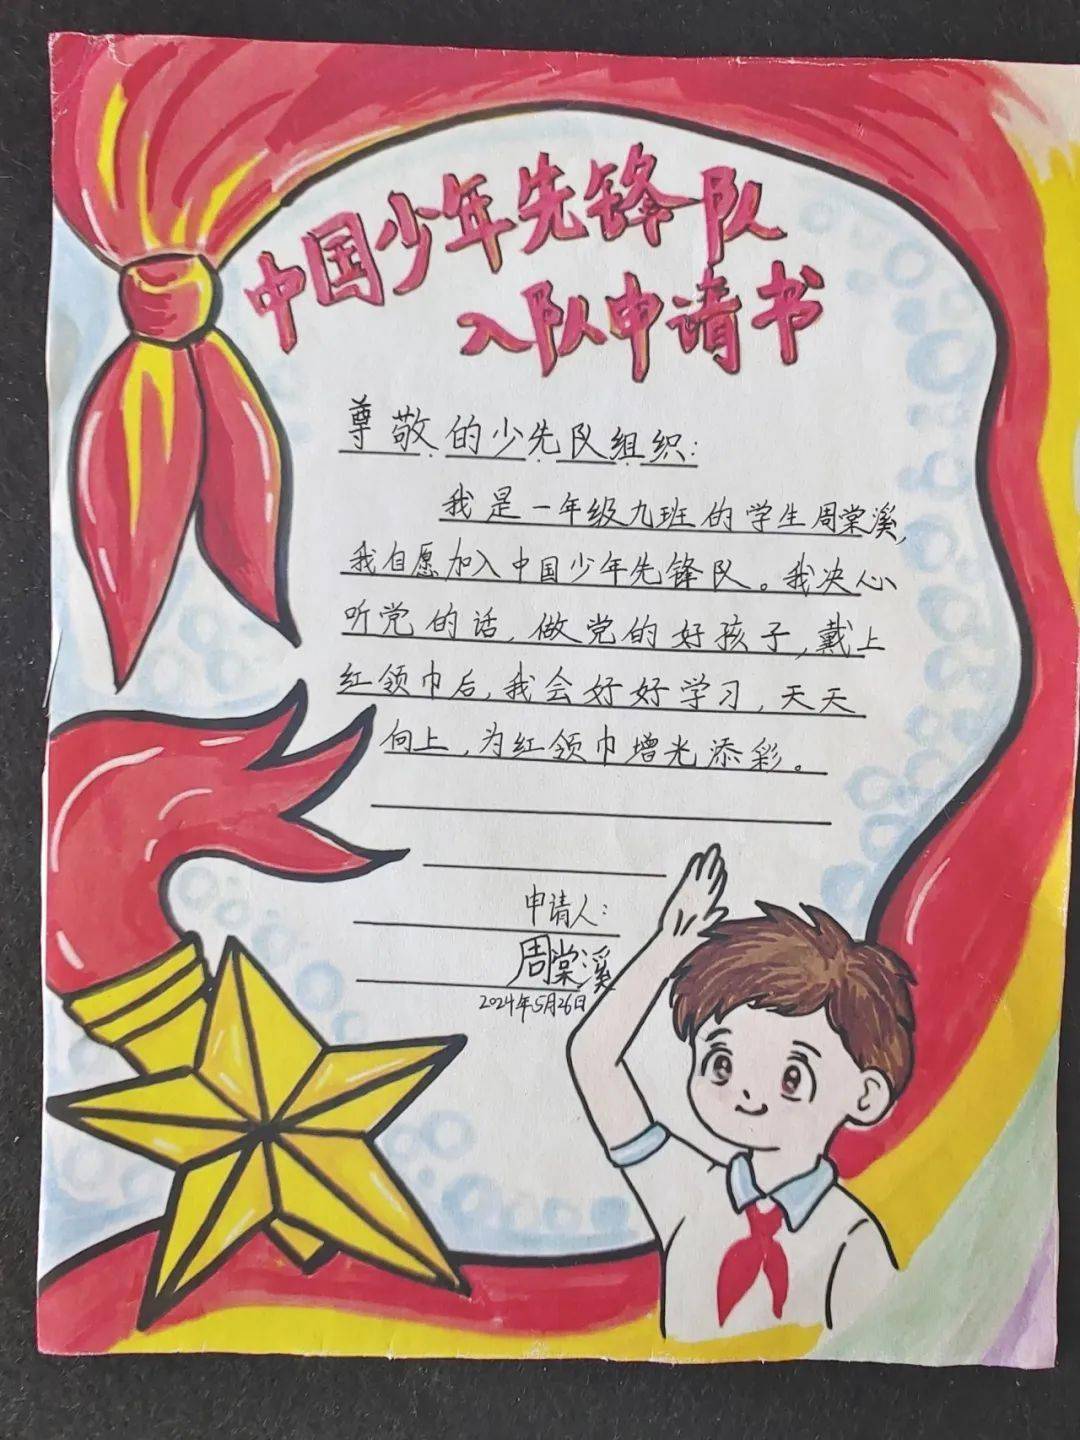 中国少年先锋队
入队申请书
尊敬的少先队组织:
我是一年级九班的学生周棠溪,
我自愿加入中国少年先锋队。我决心
听党的话,做党的好孩子,戴上
红领巾后,我会好好学习,天天
向上,为红领巾增光添彩。
申请人:
周棠溪
2024年5月26日